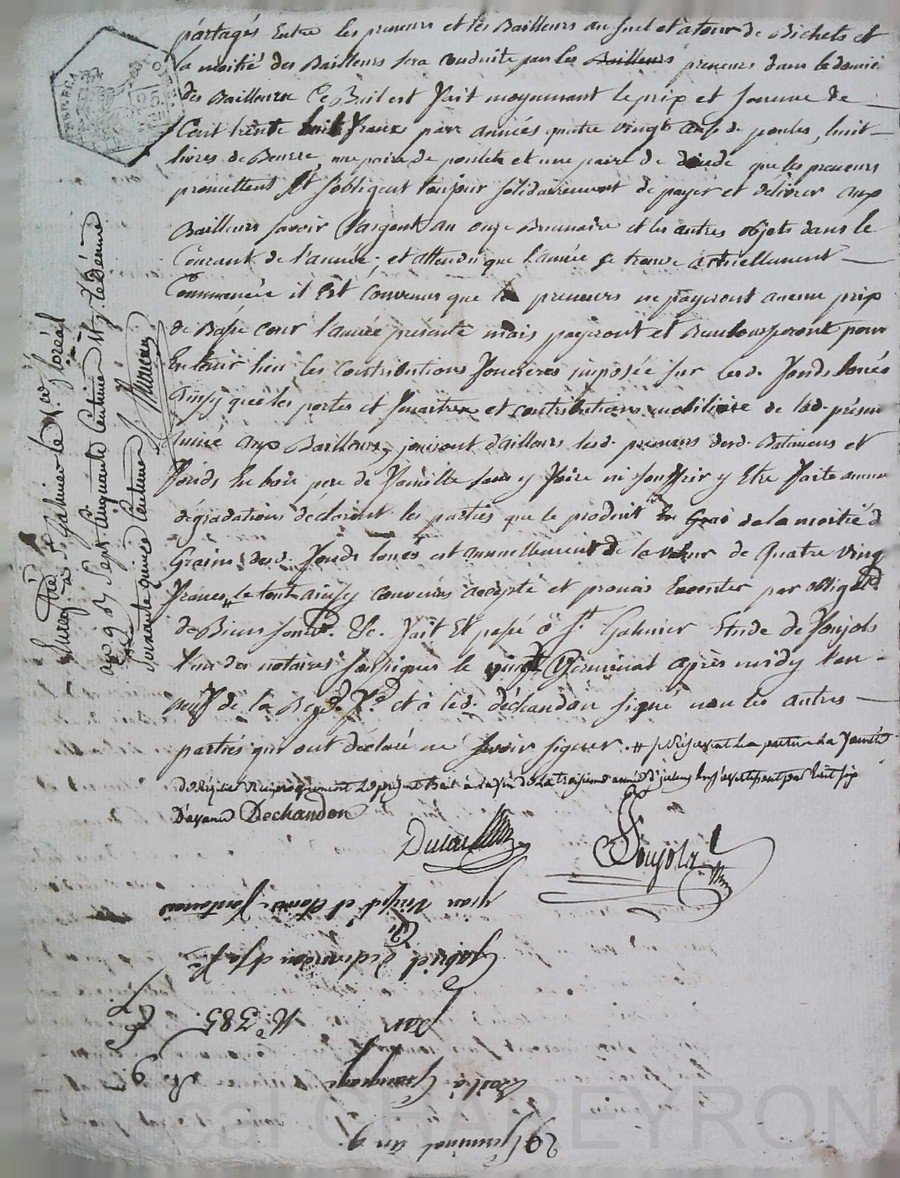 partagés Entre les preneurs et les Bailleurs au suel et à tour de Bichets et
la moitié des Bailleurs sera conduite par les Bailleurs preneurs dans le domici
des Bailleurs Ce Bail est fait moyennant le prix et somme de
Cent trente huit francs par années quatre vingt œufs de poules, huit
livres de Beurre, une paire de poulets et une paire de dinde que les preneurs
promettent et s'obligent toujour solidairement de payer et delivrer aux
Bailleurs savoir l'argent au onze Brumaire et les autres objets dans le
Courant de l'année; et attendu que l'année se trouve actuellement
Commencée il Est convenus que les preneurs ne payeront aucun prix
de Bail pour l'année présente mais payeront et Rembourseront pour
En tenir lieu les contributions foncières imposée sur lesd. fonds loués
Ainsy que les portes et fenêtres et contributions mobiliere de lad. présen
année aux Bailleurs, jouiront d'ailleurs lesd. preneurs desd. Batimens et
fonds En bon pere de famille sans y faire ni souffrir y Etre faite aucune
dégradations déclarant les parties que le produit En Gros de la moitié d
Grains desd. fonds loués est annuellement de la valeur de Quatre vingt
francs, le tout ainsy convenu accepté et promis Executer par oblig.
de Biens soumis. &c. fait Et passé à St. Galmier Etude de Poujols
l'un des notaires soussignés le vingt Germinal après midy l'an
neuf de la Rep. f. et à led. déchandon signé non les autres
parties qui ont déclaré ne savoir signer. # se Réservent les parties la faculté
de Résilier Réciproquement le présent Bail à la fin de la troisieme année
Dechandon
Poujols
Enreg.tré à St. Galmier le 21 floréal
an 9 Rç sept cinquante Centimes le dixième
soixante quinze Centimes
Gabriel Dechandon
N° 385
29 Germinal an 9
Pascal CHAPEYRON